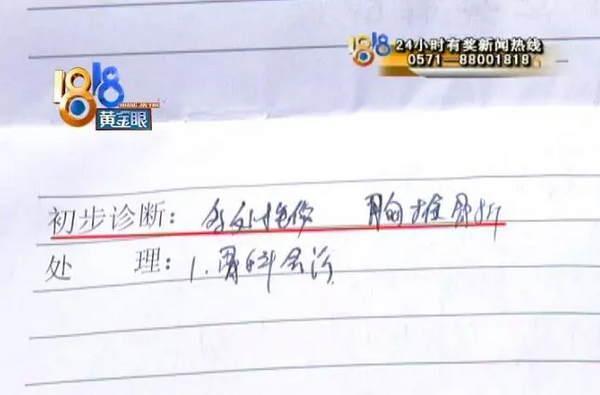 24小时有奖新闻热线
0571-88001818
1818
黄金眼
初步诊断：多处挫伤 胸椎骨折
处 理：1.骨科会诊